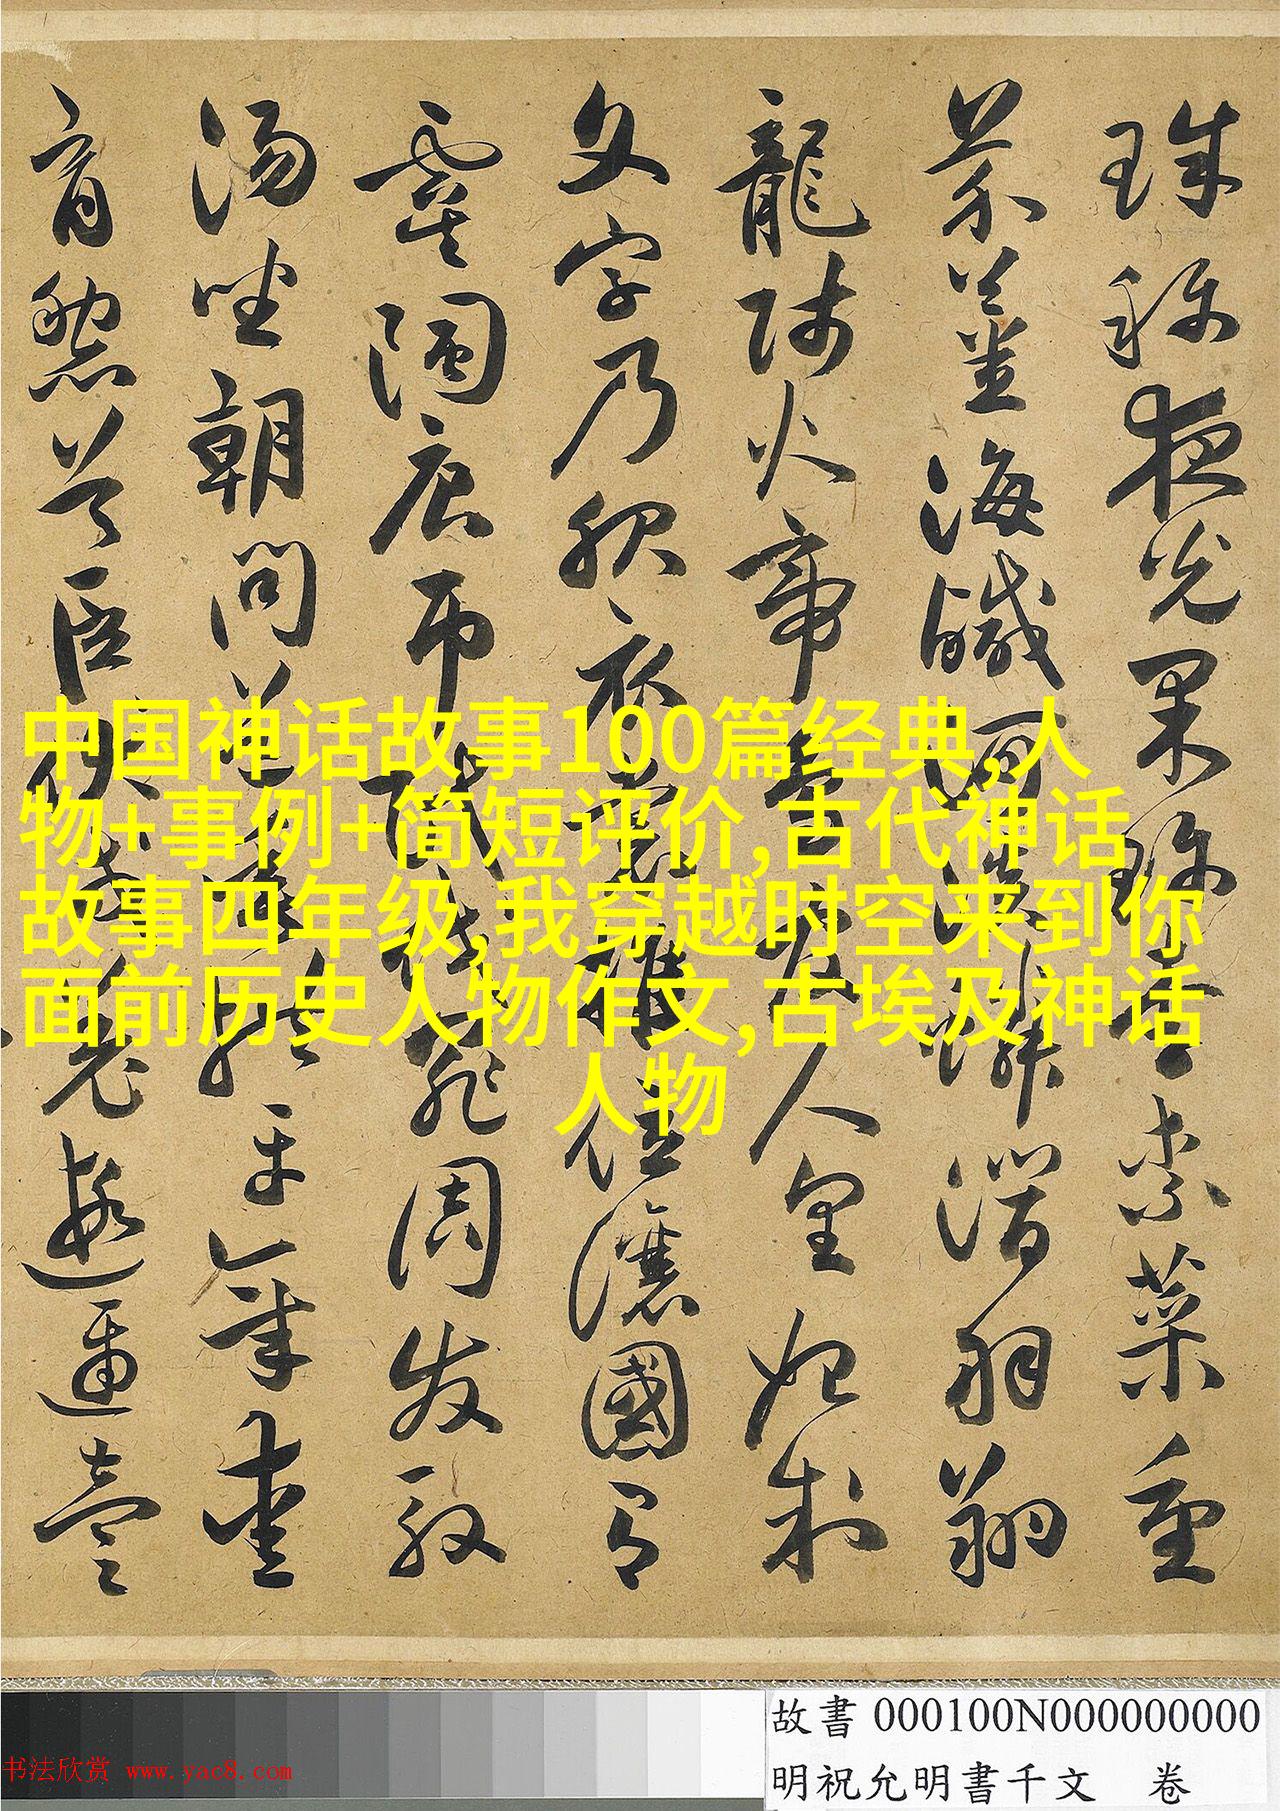 珠稱夜光果珍李柰菜重
芥薑海鹹河淡鱗潛羽翔
龍師火帝鳥官人皇始制
文字乃服衣裳推位讓國有
虞陶唐弔民伐罪周發殷
湯坐朝問道垂拱平章愛
育黎首臣伏戎羌遐邇壹
中国神话故事100篇经典,人
物+事例+简短评价,古代神话
故事四年级,我穿越时空来到你
面前历史人物作文,古埃及神话
人物
故書 000100N000000000
明祝允明書千文 卷
书法欣赏 www.yac8.com